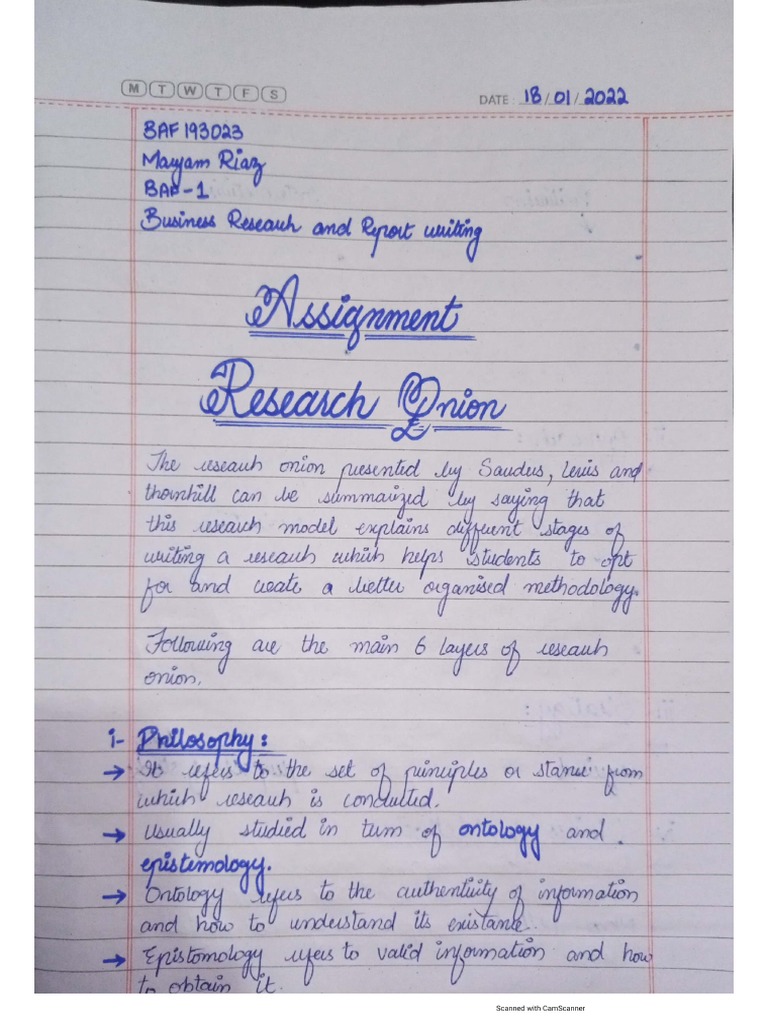 M T W T F S
DATE: 18/01/2022
BAF193023
Maryam Riaz
BAF-1
Business Research and Report writing
Assignment
Research Onion
The research onion presented by Saudus, Lewis and
thornhill can be summarized by saying that
this research model explains different stages of
writing a research which helps students to opt
for and create a better organised methodology.
Following are the main 6 layers of research
onion.
i- Philosophy:
→ It refers to the set of principles or stance from
which research is conducted.
→ Usually studied in term of ontology and
epistemology.
→ Ontology refers to the authenticity of information
and how to understand its existance.
→ Epistomology refers to valid information and how
to obtain it.
Scanned with CamScanner